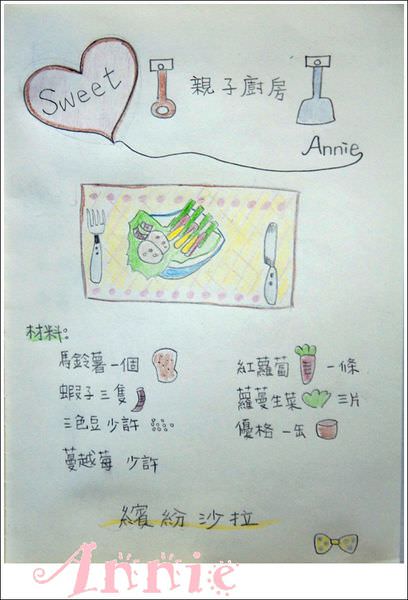 Sweet
親子廚房
Annie
材料:
馬鈴薯一個
紅蘿蔔 一條
蝦子三隻
蘿蔓生菜 三片
三色豆少許
優格一缶
蔓越莓 少許
繽紛沙拉
Annie